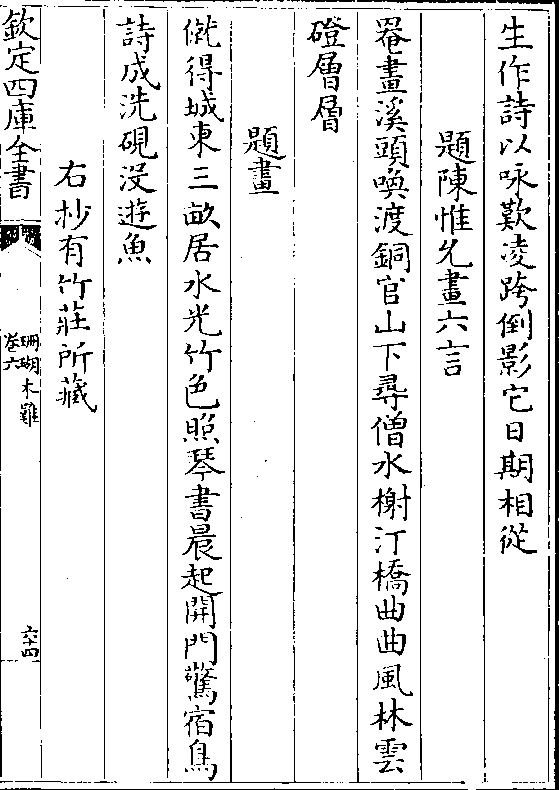 生作詩以咏歎凌跨倒影它日期相從
題陳惟允畫六言
罨畫溪頭喚渡銅官山下尋僧水榭汀橋曲曲風林雲
磴層層
題畫
僦得城東三畝居水光竹色照琴書晨起開門驚宿鳥
詩成洗硯没遊魚
右抄有竹莊所藏
欽定四庫全書
珊瑚木難
卷六
六十四